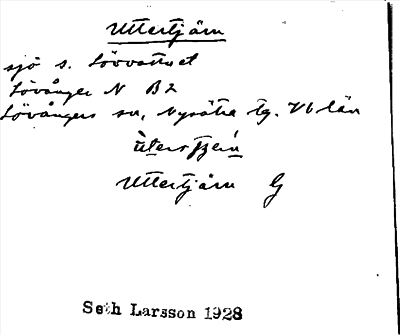 Uttertjärn
sjö s. Lövvattnet
Lövånger N B2
Lövångers sn, Nysätra tg. Vb län
Uttertjärn G
Seth Larsson 1928